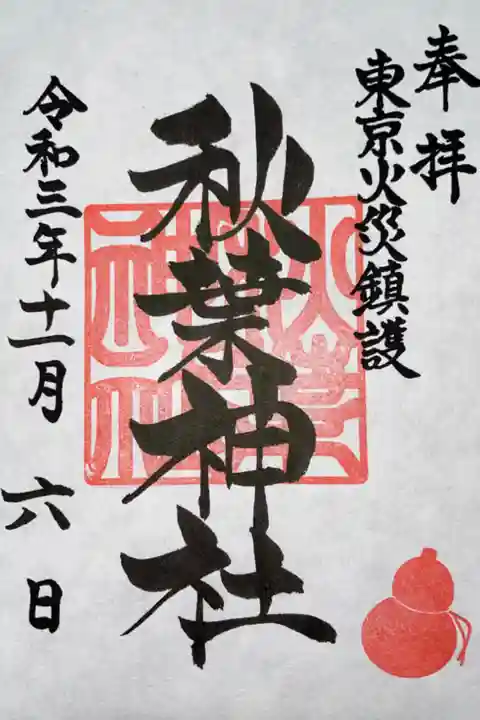 奉拝
東京火災鎮護
秋葉神社
令和三年十一月六日
秋葉神社